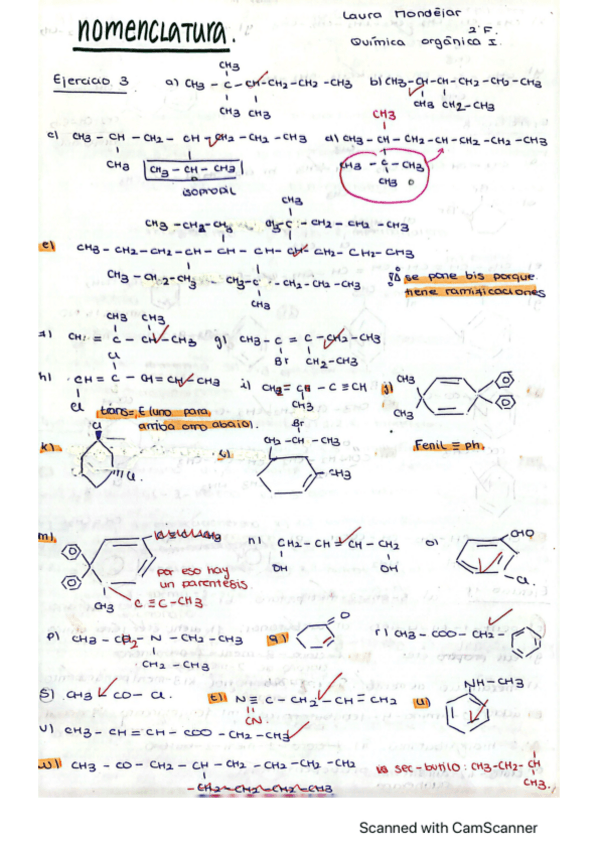 nomenclatura.
Laura Mondéjar
2ºF.
Química orgánica I.
Ejercicio 3
a) CH3 - C - CH-CH2-CH2-CH3
CH3
CH3 CH3
b) CH3-CH-CH-CH2-CH2-CH3
CH3 CH2-CH3
c) CH3 - CH - CH2 - CH - CH2 - CH2 - CH3
CH3
CH3 - CH - CH3
isopropil
d) CH3 - CH - CH2-CH-CH2-CH2-CH3
CH3
CH3 - C - CH3
CH3
CH3
CH3 -CH2-CH3
- CH2 - CH2-CH3
e) CH3-CH2-CH2-CH-CH - CH - CH- CH2- CH2-CH3
CH3-CH2-CH3
-CH2-CH2-CH3
CH3
se pone bis porque
tiene ramificaciones
CH3 CH3
= C - CH-CH3
Cl
g) CH3-C = C -CH2-CH3
Br CH2-CH3
h) CH=C - CH=CH-CH3
Cl
trans=E (uno para
arriba otro abajo).
i) CH2= - C≡CH
CH3
j)
CH3
CH3
Fenil ≡ ph.
k)
Cl
Cl
Br
CH2 -CH - CH3
CH3
m)
por eso hay
un parentesis
CH3
C≡C-CH3
n) CH2-CH=CH-CH2
OH OH
o)
CHO
Cl
p) CH3 - CH2 - N - CH2-CH3
CH2-CH3
q)
O
r) CH3-COO-CH2-
s) CH3 - CO- Cl
t) N≡C-CH2-CH=CH2
CN
u)
NH-CH3
v) CH3-CH=CH-COO-CH2-CH3
w) CH3 - CO-CH2-CH-CH2-CH2-CH2-CH2
-CH2-CH2-CH2-CH3
sec-butilo: CH3-CH2-CH
CH3.
Scanned with CamScanner